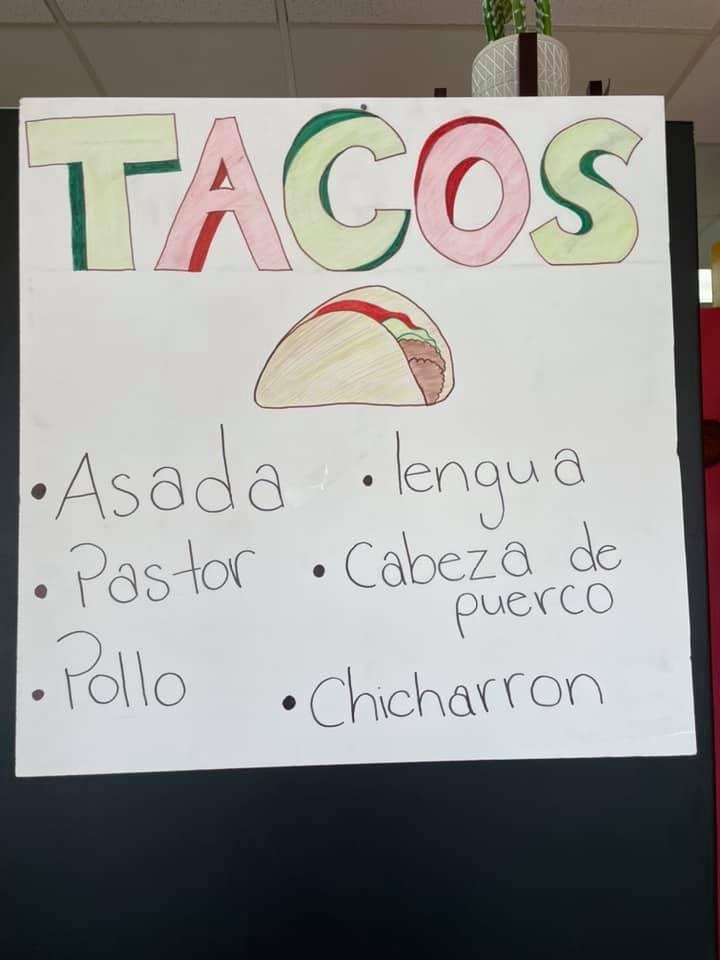 TACOS
• Asada
• lengua
• Pastor
• Cabeza de
puerco
• Pollo
• Chicharron